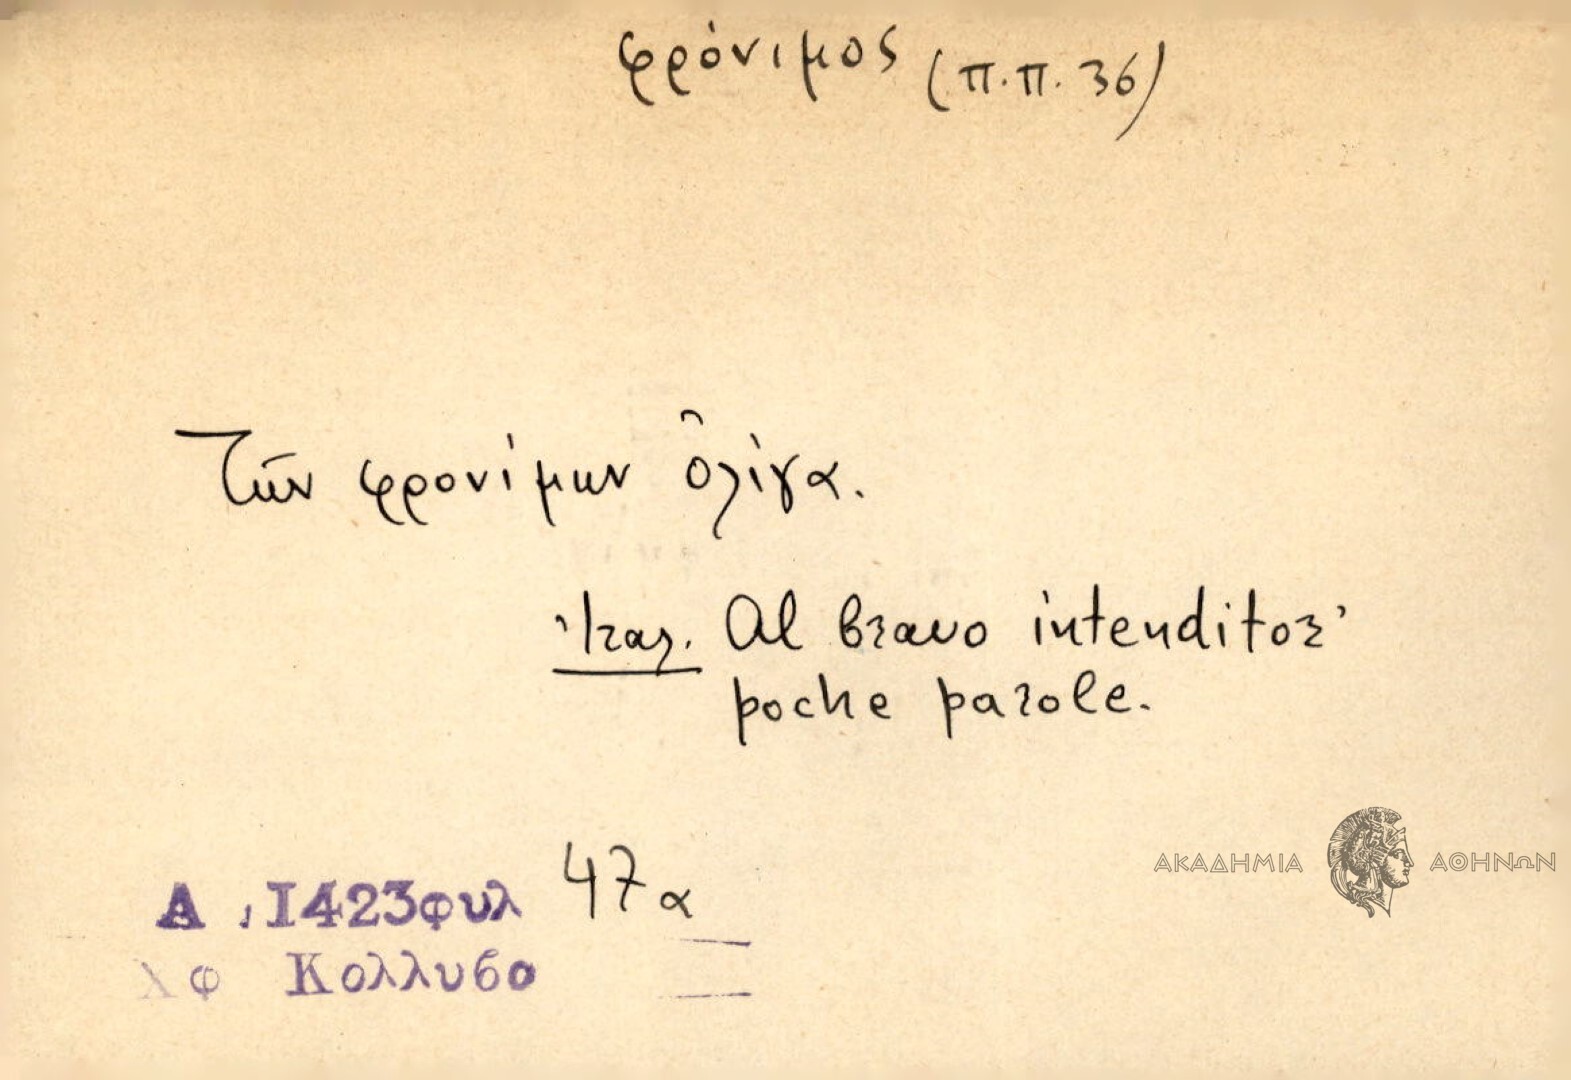 φρόνιμος (π.π. 36)
Τῶν φρονίμων ὀλίγα.
Ἰταλ. Al bravo intenditor'
poche parole.
Α. 1423 φυλ 47α
Χφ Κολλυβα
ΑΚΑΔΗΜΙΑ ΑΘΗΝΩΝ